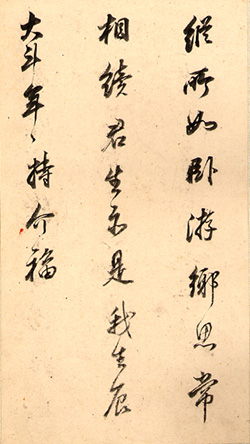 縱所如卧游鄉思常
相續君生亦是我生辰
大斗年々持介福